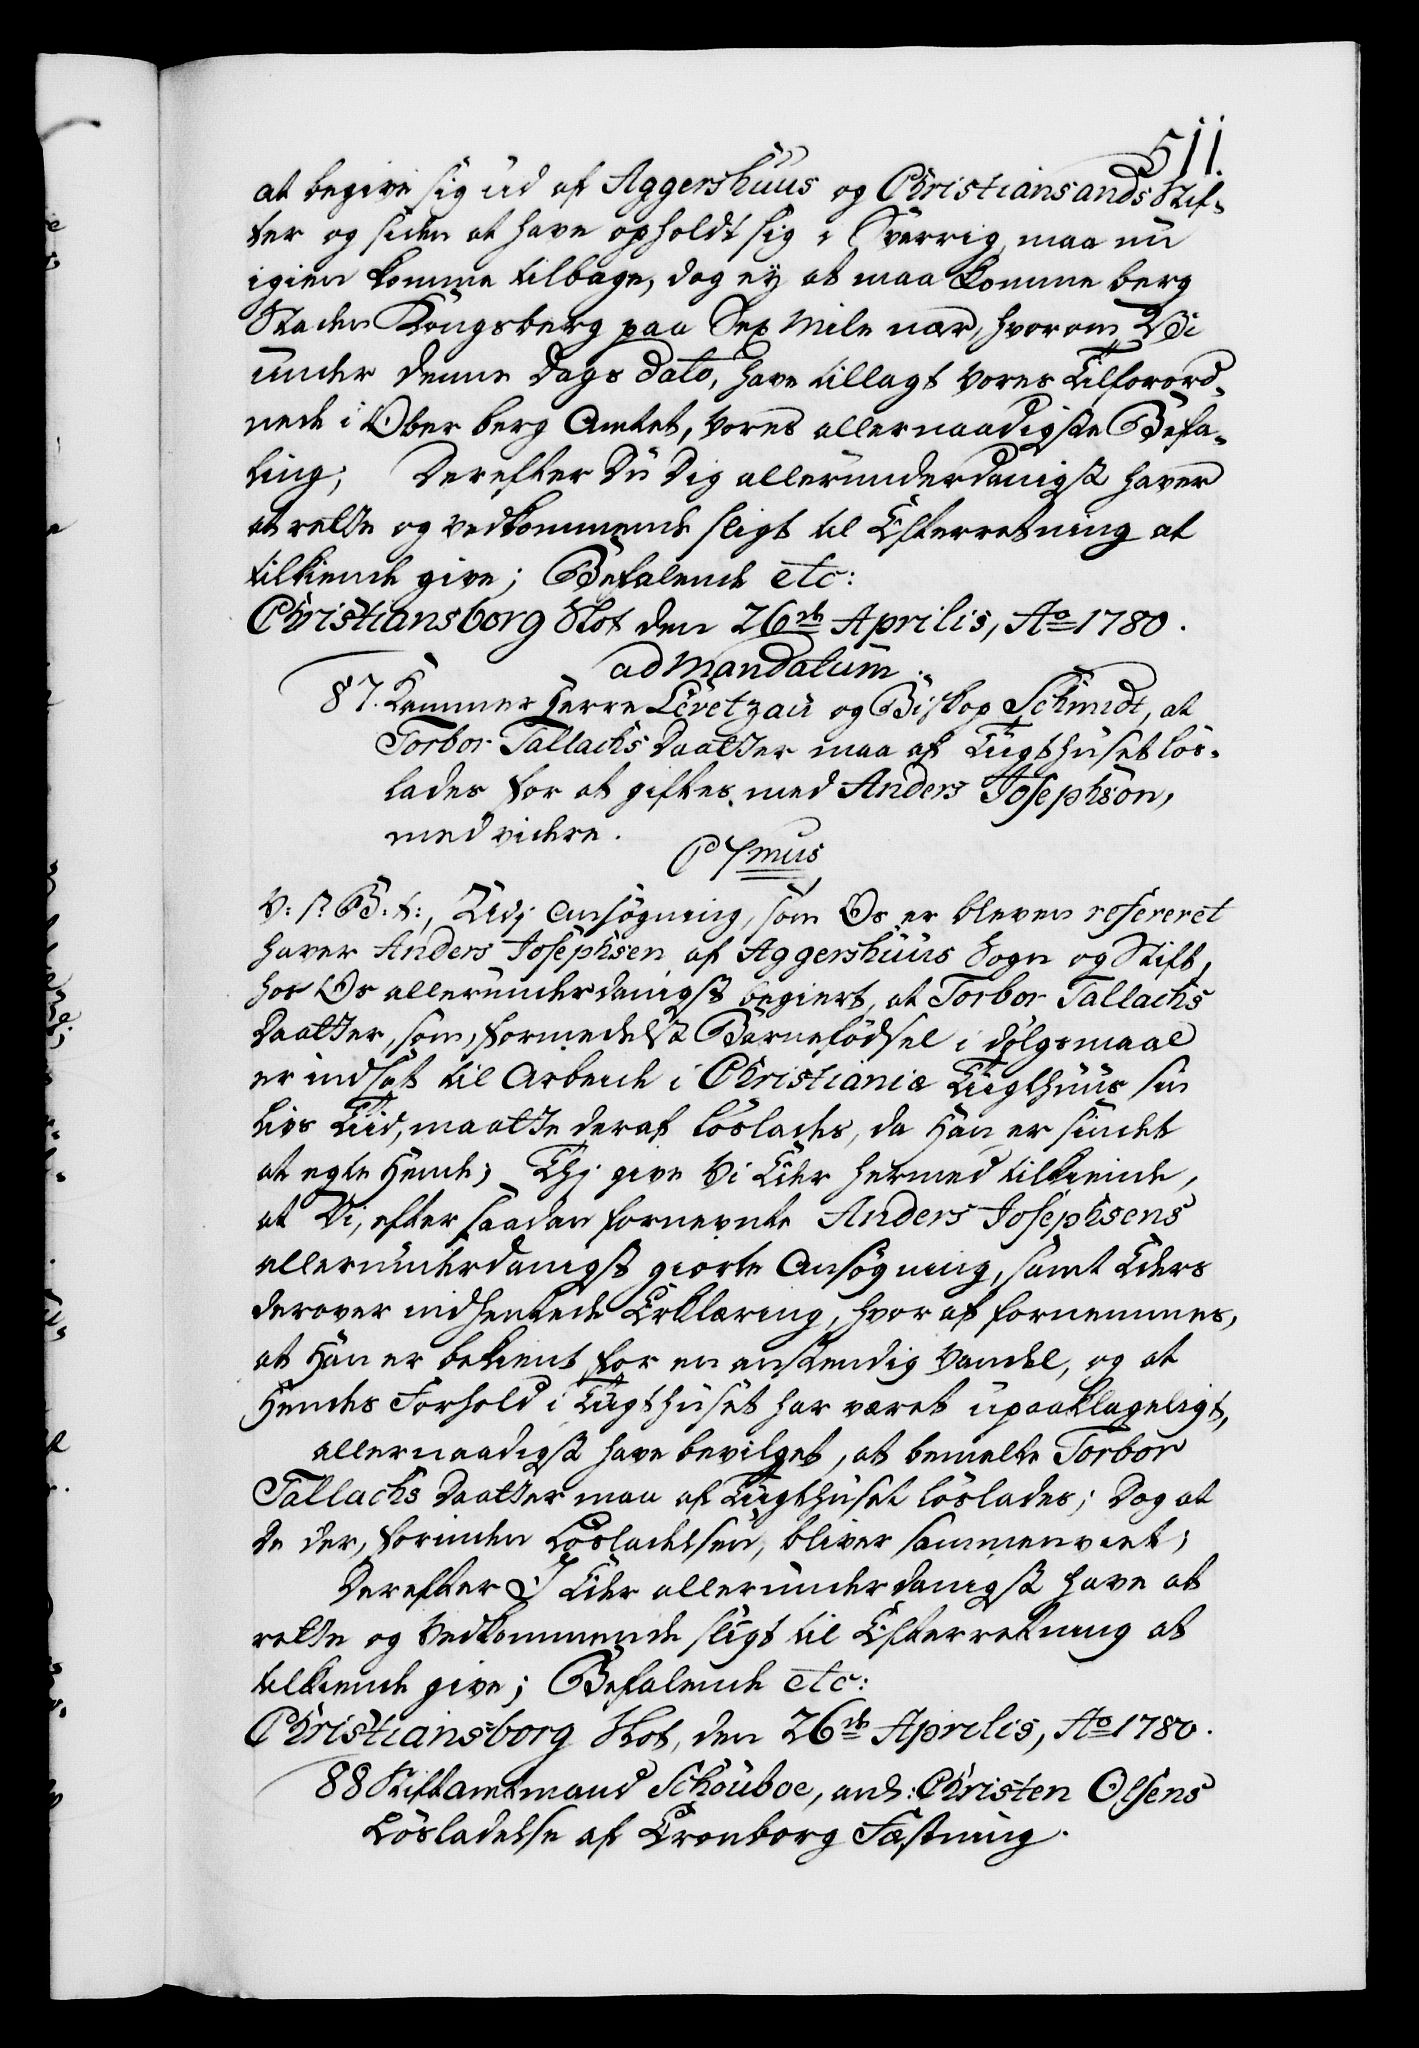 511.
at begive sig ud af Aggershuus og Christiansands Stif-
ter og siden at have opholdt sig i Sverrig, maa nu
igien komme tilbage, dog ey at maa komme berg
Staden Kongsberg paa Sex Mile nær, hvorom Vi
under denne Dags Dato, have tillagt Vores Tilforord-
nede i Ober berg Amtet, Vores allernaadigste Befa-
ling; Derefter Du Dig allerunderdanigst haver
at rette og vedkommende sligt til Efterretning at
tilkiende give; Befalende etc:
Christiansborg Slot den 26de Aprilis, Ao 1780.
ad Mandatum.
87. Kammer Herre Levetzau og Biskop Schmidt, at
Torbor Tallachs Daatter maa af Tugthuset løs-
lades for at giftes med Anders Josephsøn,
med videre.
C 7mus
V: s: G: t:, Udj Ansøgning, som Os er bleven refereret
haver Anders Josephsen af Aggershuus Sogn og Stift,
hos Os allerunderdanigst begiert, at Torbor Tallachs
Daatter, som, formedelst Barnefødsel i dølgsmaal
er indsat til Arbeide i Christiania Tugthuus sin
Livs Tiid, maatte deraf løslades, da Han er sindet
at egte Hende; Thj give Vi Eder hermed tilkiende,
at Vi, efter saadan fornevnte Anders Josephsens
allerunderdanigst giorte Ansøgning, samt Eders
derover indhentede Erklæring, hvoraf fornemmes,
at Han er bekient for en anstendig Vandel, og at
Hendes Forhold i Tugthuset har været upaaklageligt,
allernaadigst have bevilget, at bemelte Torbor
Tallachs Daatter maa af Tugthuset løslades; Dog at
de der, forinden Løsladelsen, bliver sammenviet;
Derefter I Eder allerunderdanigst have at
rette og Vedkommende sligt til Efterretning at
tilkiende give; Befalende etc:
Christiansborg Slot, den 26de Aprilis, Ao 1780.
88 Stiftamtmand Schouboe, anl: Christen Olsens
Løsladelse af Cronborg Fæstning.